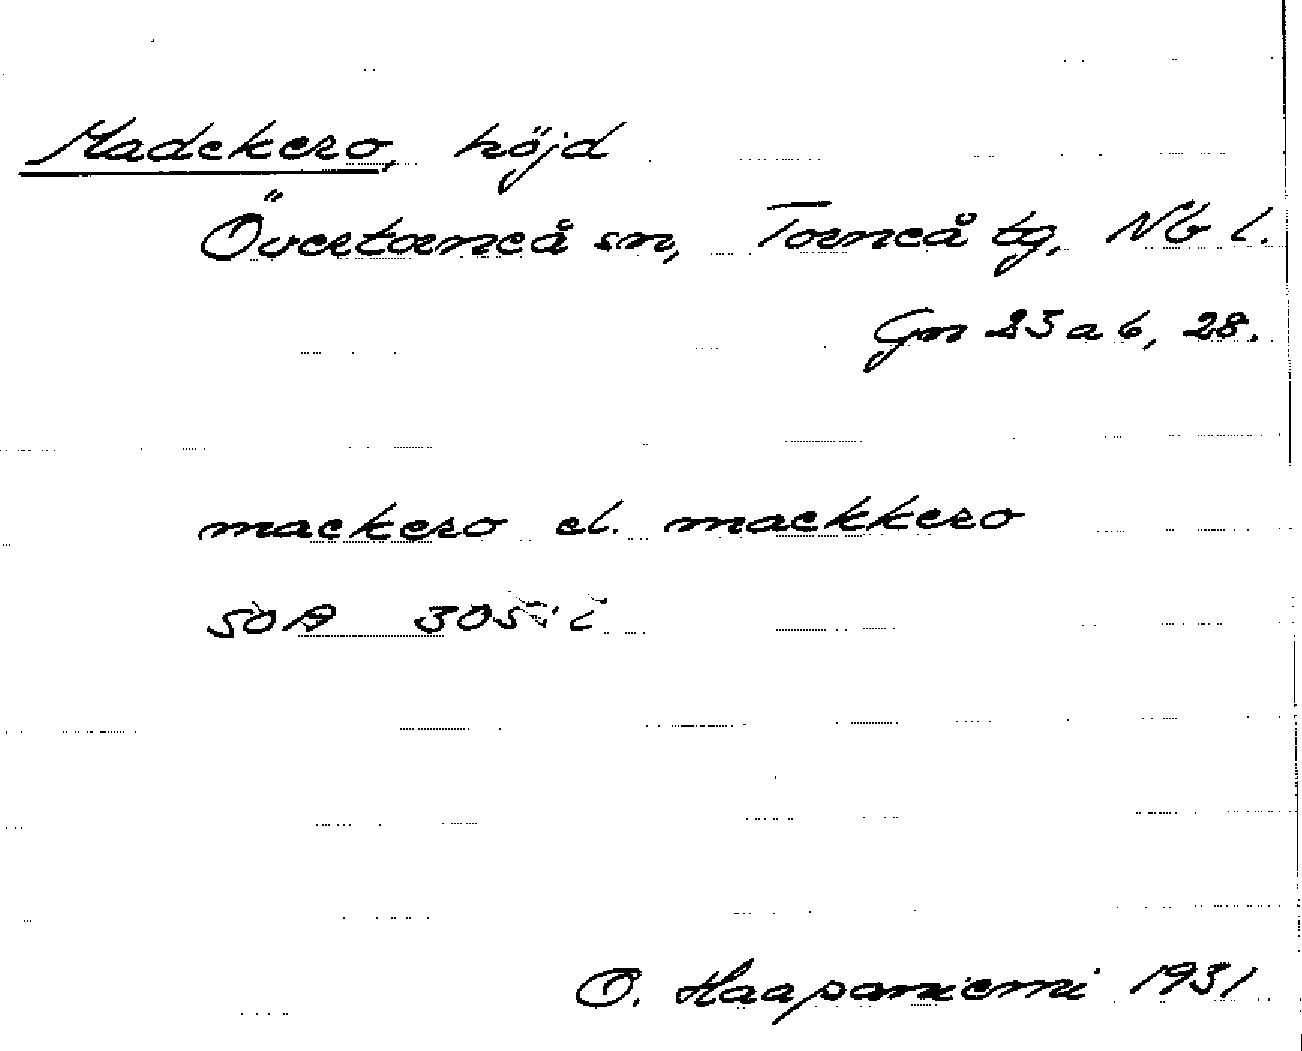 Madekero, höjd
Övertorneå sn, Torneå tg, Nb l.
Gn 23 a b, 28.
maekero el. maekkero
SOA 305
O. Haapaniemi 1931